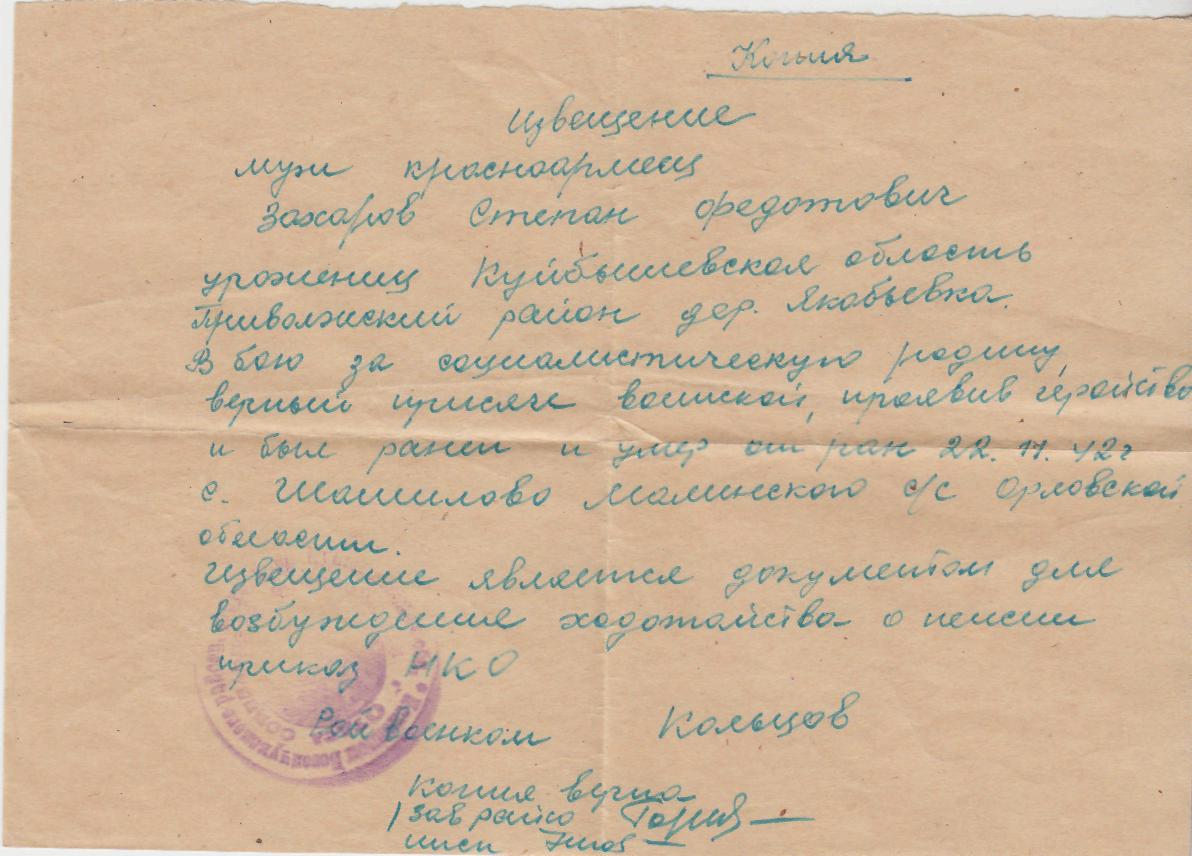 Копия
Извещение
муж красноармеец
Захаров Степан Федотович
уроженец Куйбышевская область
Приволжский район дер. Якобьевка.
В бою за социалистическую родину,
верный присяге воинской, проявив геройство
и был ранен и умер от ран 22.11.42г
с. Шашилово Малинского с/с Орловской
области.
Извещение является документом для
возбуждение ходотайства о пенсии
приказ НКО
Райвоенком Кольцов
Копия верна
/Зав райсо